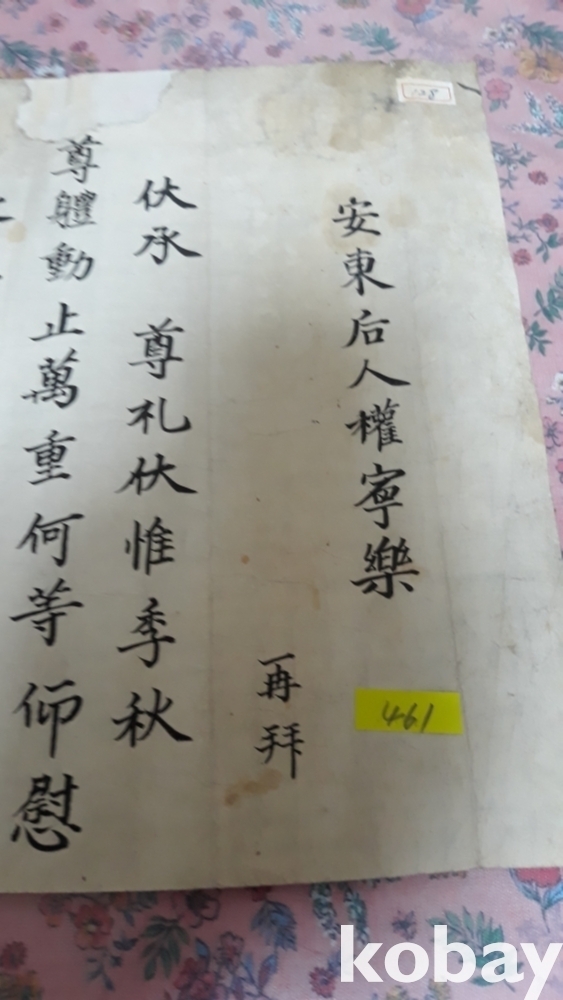 138
安東后人權寧樂
再拜
伏承 尊札伏惟季秋
尊體動止萬重何等仰慰
461
kobay